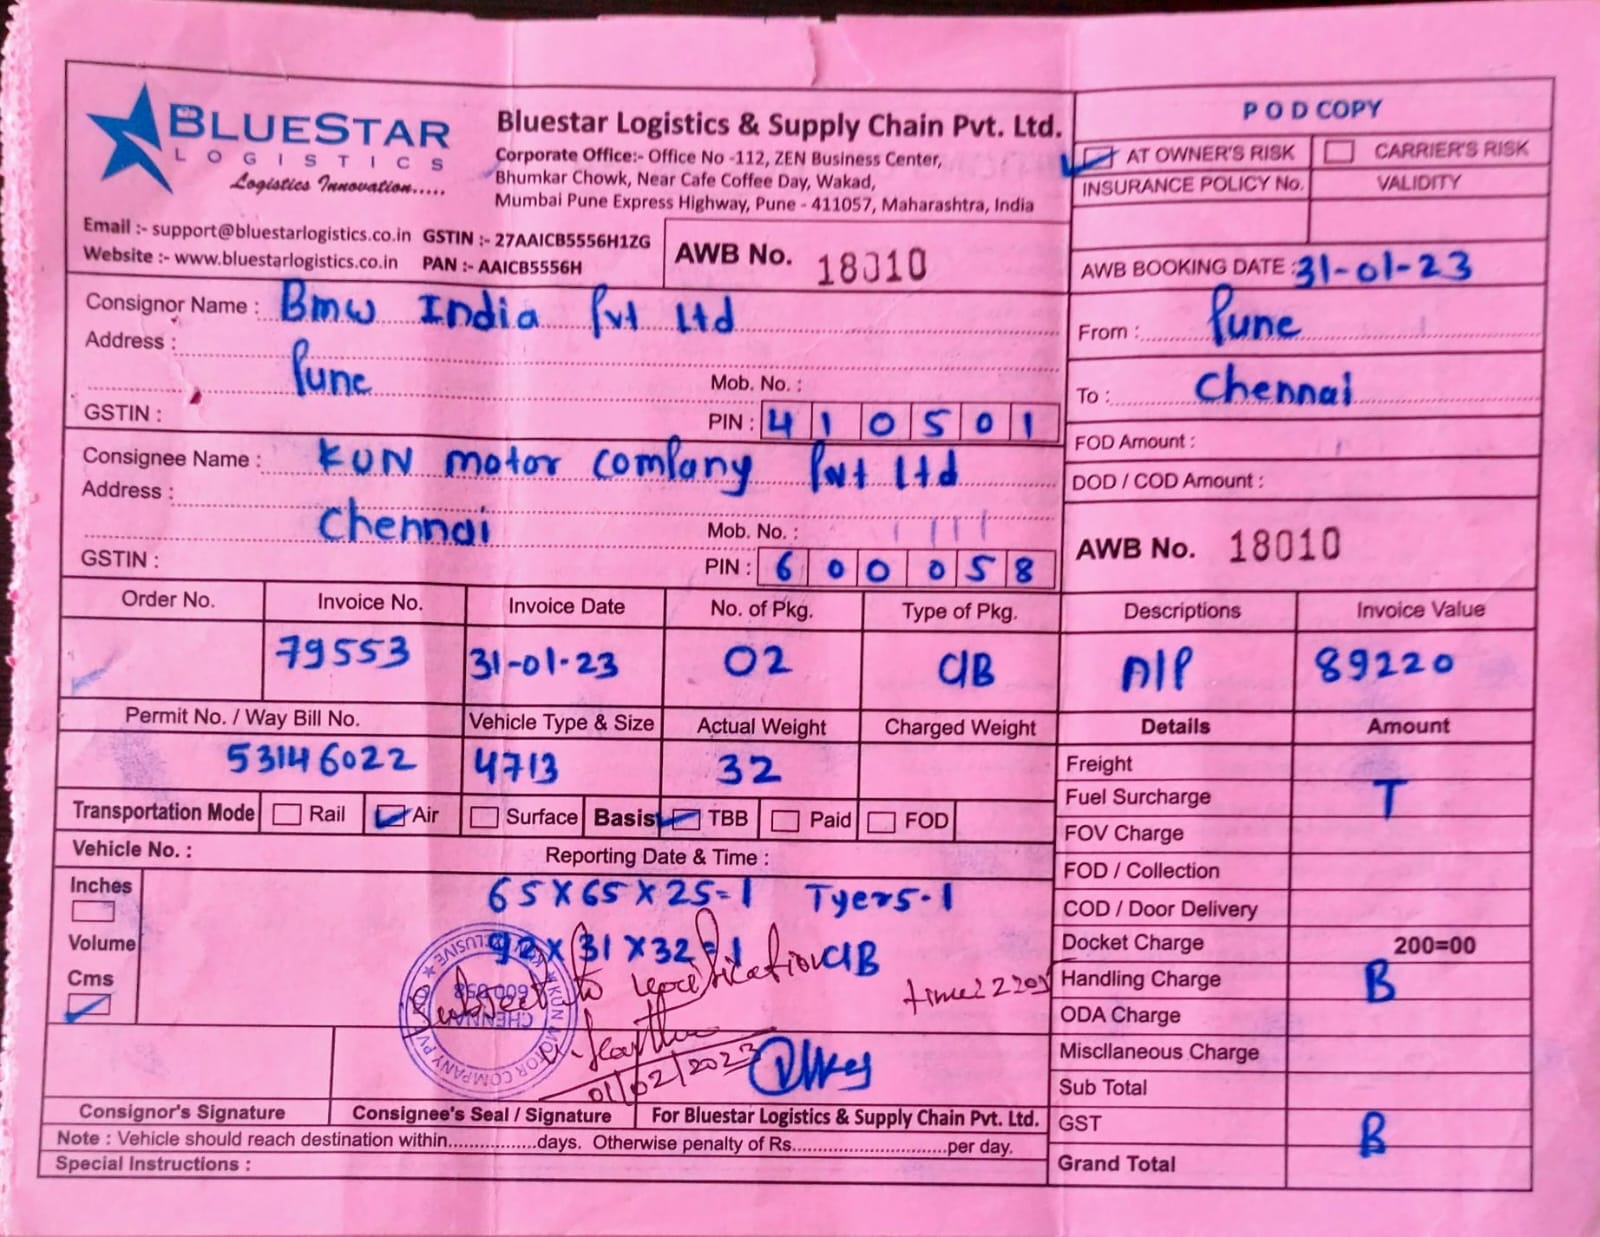 BLUESTAR
LOGISTICS
Logistics Innovation.....
Bluestar Logistics & Supply Chain Pvt. Ltd.
Corporate Office:- Office No -112, ZEN Business Center,
Bhumkar Chowk, Near Cafe Coffee Day, Wakad,
Mumbai Pune Express Highway, Pune - 411057, Maharashtra, India
Email :- support@bluestarlogistics.co.in GSTIN :- 27AAICB5556H1ZG
Website :- www.bluestarlogistics.co.in PAN :- AAICB5556H
AWB No. 18010
POD COPY
AT OWNER'S RISK CARRIER'S RISK
INSURANCE POLICY No. VALIDITY
AWB BOOKING DATE : 31-01-23
From : Pune
To : Chennai
FOD Amount :
DOD / COD Amount :
AWB No. 18010
Consignor Name : Bmw India Pvt Ltd
Address :
Pune Mob. No. :
GSTIN : PIN : 410501
Consignee Name : KUN motor company Pvt Ltd
Address :
Chennai Mob. No. :
GSTIN : PIN : 600058
Order No. Invoice No. Invoice Date No. of Pkg. Type of Pkg. Descriptions Invoice Value
79553 31-01-23 02 C/B A/P 89220
Permit No. / Way Bill No. Vehicle Type & Size Actual Weight Charged Weight Details Amount
53146022 4713 32
Transportation Mode Rail Air Surface Basis TBB Paid FOD
Vehicle No. : Reporting Date & Time :
Inches
Volume
Cms
65X65X25=1 Tyers-1
92X31X32=1 C/B
Subject to verification
time 2205
01/02/2023
KUN MOTOR COMPANY PV
CHENNAI
600 058
Freight
Fuel Surcharge T
FOV Charge
FOD / Collection
COD / Door Delivery
Docket Charge 200=00
Handling Charge B
ODA Charge
Miscllaneous Charge
Sub Total
GST B
Grand Total
Consignor's Signature Consignee's Seal / Signature For Bluestar Logistics & Supply Chain Pvt. Ltd.
Note : Vehicle should reach destination within.................days. Otherwise penalty of Rs..............................per day.
Special Instructions :